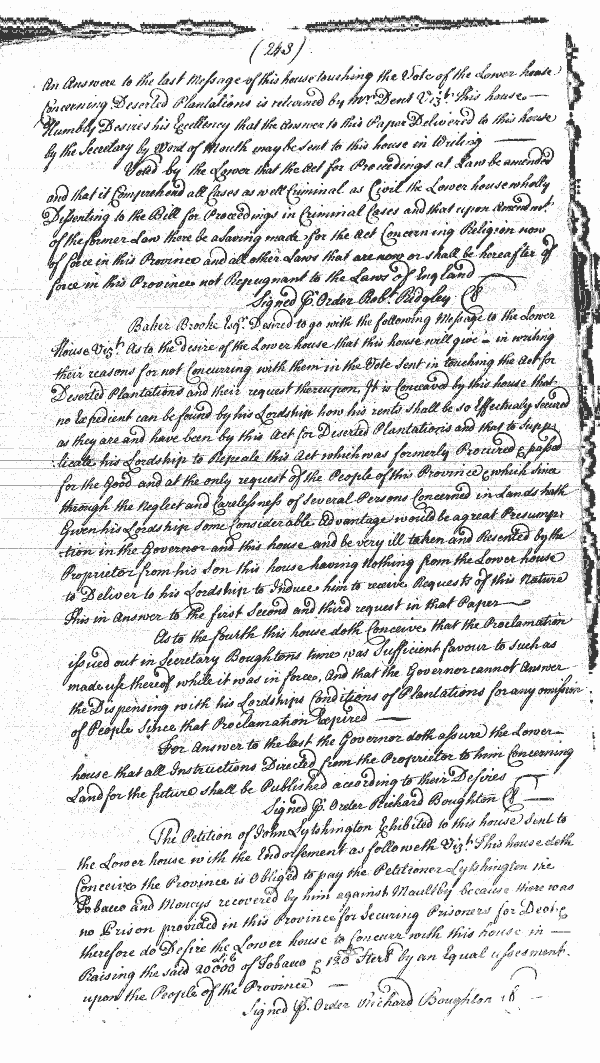 (243)
An Answere to the last Message of this house touching the Vote of the Lower house
Concerning Deserted Plantations is returned by mr. Dent Vizt. this house —
Humbly Desires his Excellency that the Answer to this Paper Delivered to this house
by the Secretary by Word of Mouth may be sent to this house in Writing —
Voted by the Lower that the Act for Proceedings at Law be amended
and that it Comprehend all Cases as well Criminal as Civil the Lower house wholly
Dissenting to the Bill for Proceedings in Criminal Cases and that upon Amendmt.
of the former Law there be a Saving made for the Act Concerning Religion now
of force in this Province and all other Laws that are now or shall be hereafter of
force in this Province not Repugnant to the Laws of England
Signed P. Order Robt. Ridgely
Baker Brooke Esqr. Desired to go with the following Message to the Lower
House Vizt. As to the desire of the Lower house that this house will give in writing
their reasons for not Concurring with them in the Vote Sent in touching the Act for
Deserted Plantations and their request thereupon, It is Conceaved by this house that
no Expedient can be found by his Lordship how his rents shall be so Effectualy Secured
as they are and have been by this Act for Deserted Plantations and that to Supp
:licate his Lordship to Repeale this Act which was formerly Procured & passed
for the Good and at the only request of the People of this Province & which Since
through the Neglect and Carelessness of Several Persons Concerned in Lands hath
Given his Lordship Some Considerable Advantage would be a great Presump
:tion in the Governor and this house and be very ill taken and Resented by the
Proprietor from his Son this house having nothing from the Lower house
to Deliver to his Lordship to Induce him to receive Requests of this Nature
This in Answer to the first Second and third request in that Paper —
As to the fourth this house doth Conceive that the Proclamation
issued out in Secretary Boughtons time was Sufficient favour to Such as
made use thereof while it was in force, And that the Governor cannot Answer
the Dispensing with his Lordships Conditions of Plantations for any omission
of People Since that Proclamation Expired —
For Answer to the last the Governor doth assure the Lower
house that all Instructions Directed from the Proprietor to him Concerning
Land for the future shall be Published according to their Desires
Signed P. Order Richard Boughton
The Petition of John Lytshington Exhibited to this house Sent to
the Lower house with the Endorsement as followeth Vizt. This house doth
Conceive the Province is Obliged to pay the Petitioner Lytshington the
Tobacco and Moneys recovered by him against Maultby because there was
no Prison provided in this Province for Securing Prisoners for Debt &
therefore do Desire the Lower house to Concurr with this house in —
Raising the said 20000 of Tobacco & Sterl by an Equal assesment
upon the People of the Province —
Signed P. Order Richard Boughton